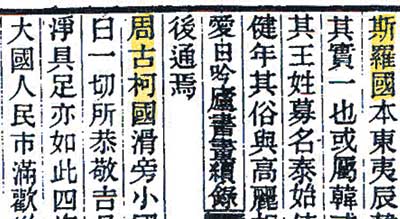 斯羅國本東夷辰
其實一也或屬韓
其王姓募名泰始
健年其俗與高麗
愛日吟廬書畫續錄
後通焉
周古柯國滑旁小國
曰一切所恭敬吉
淨具足亦如此四
大國人民市滿歡